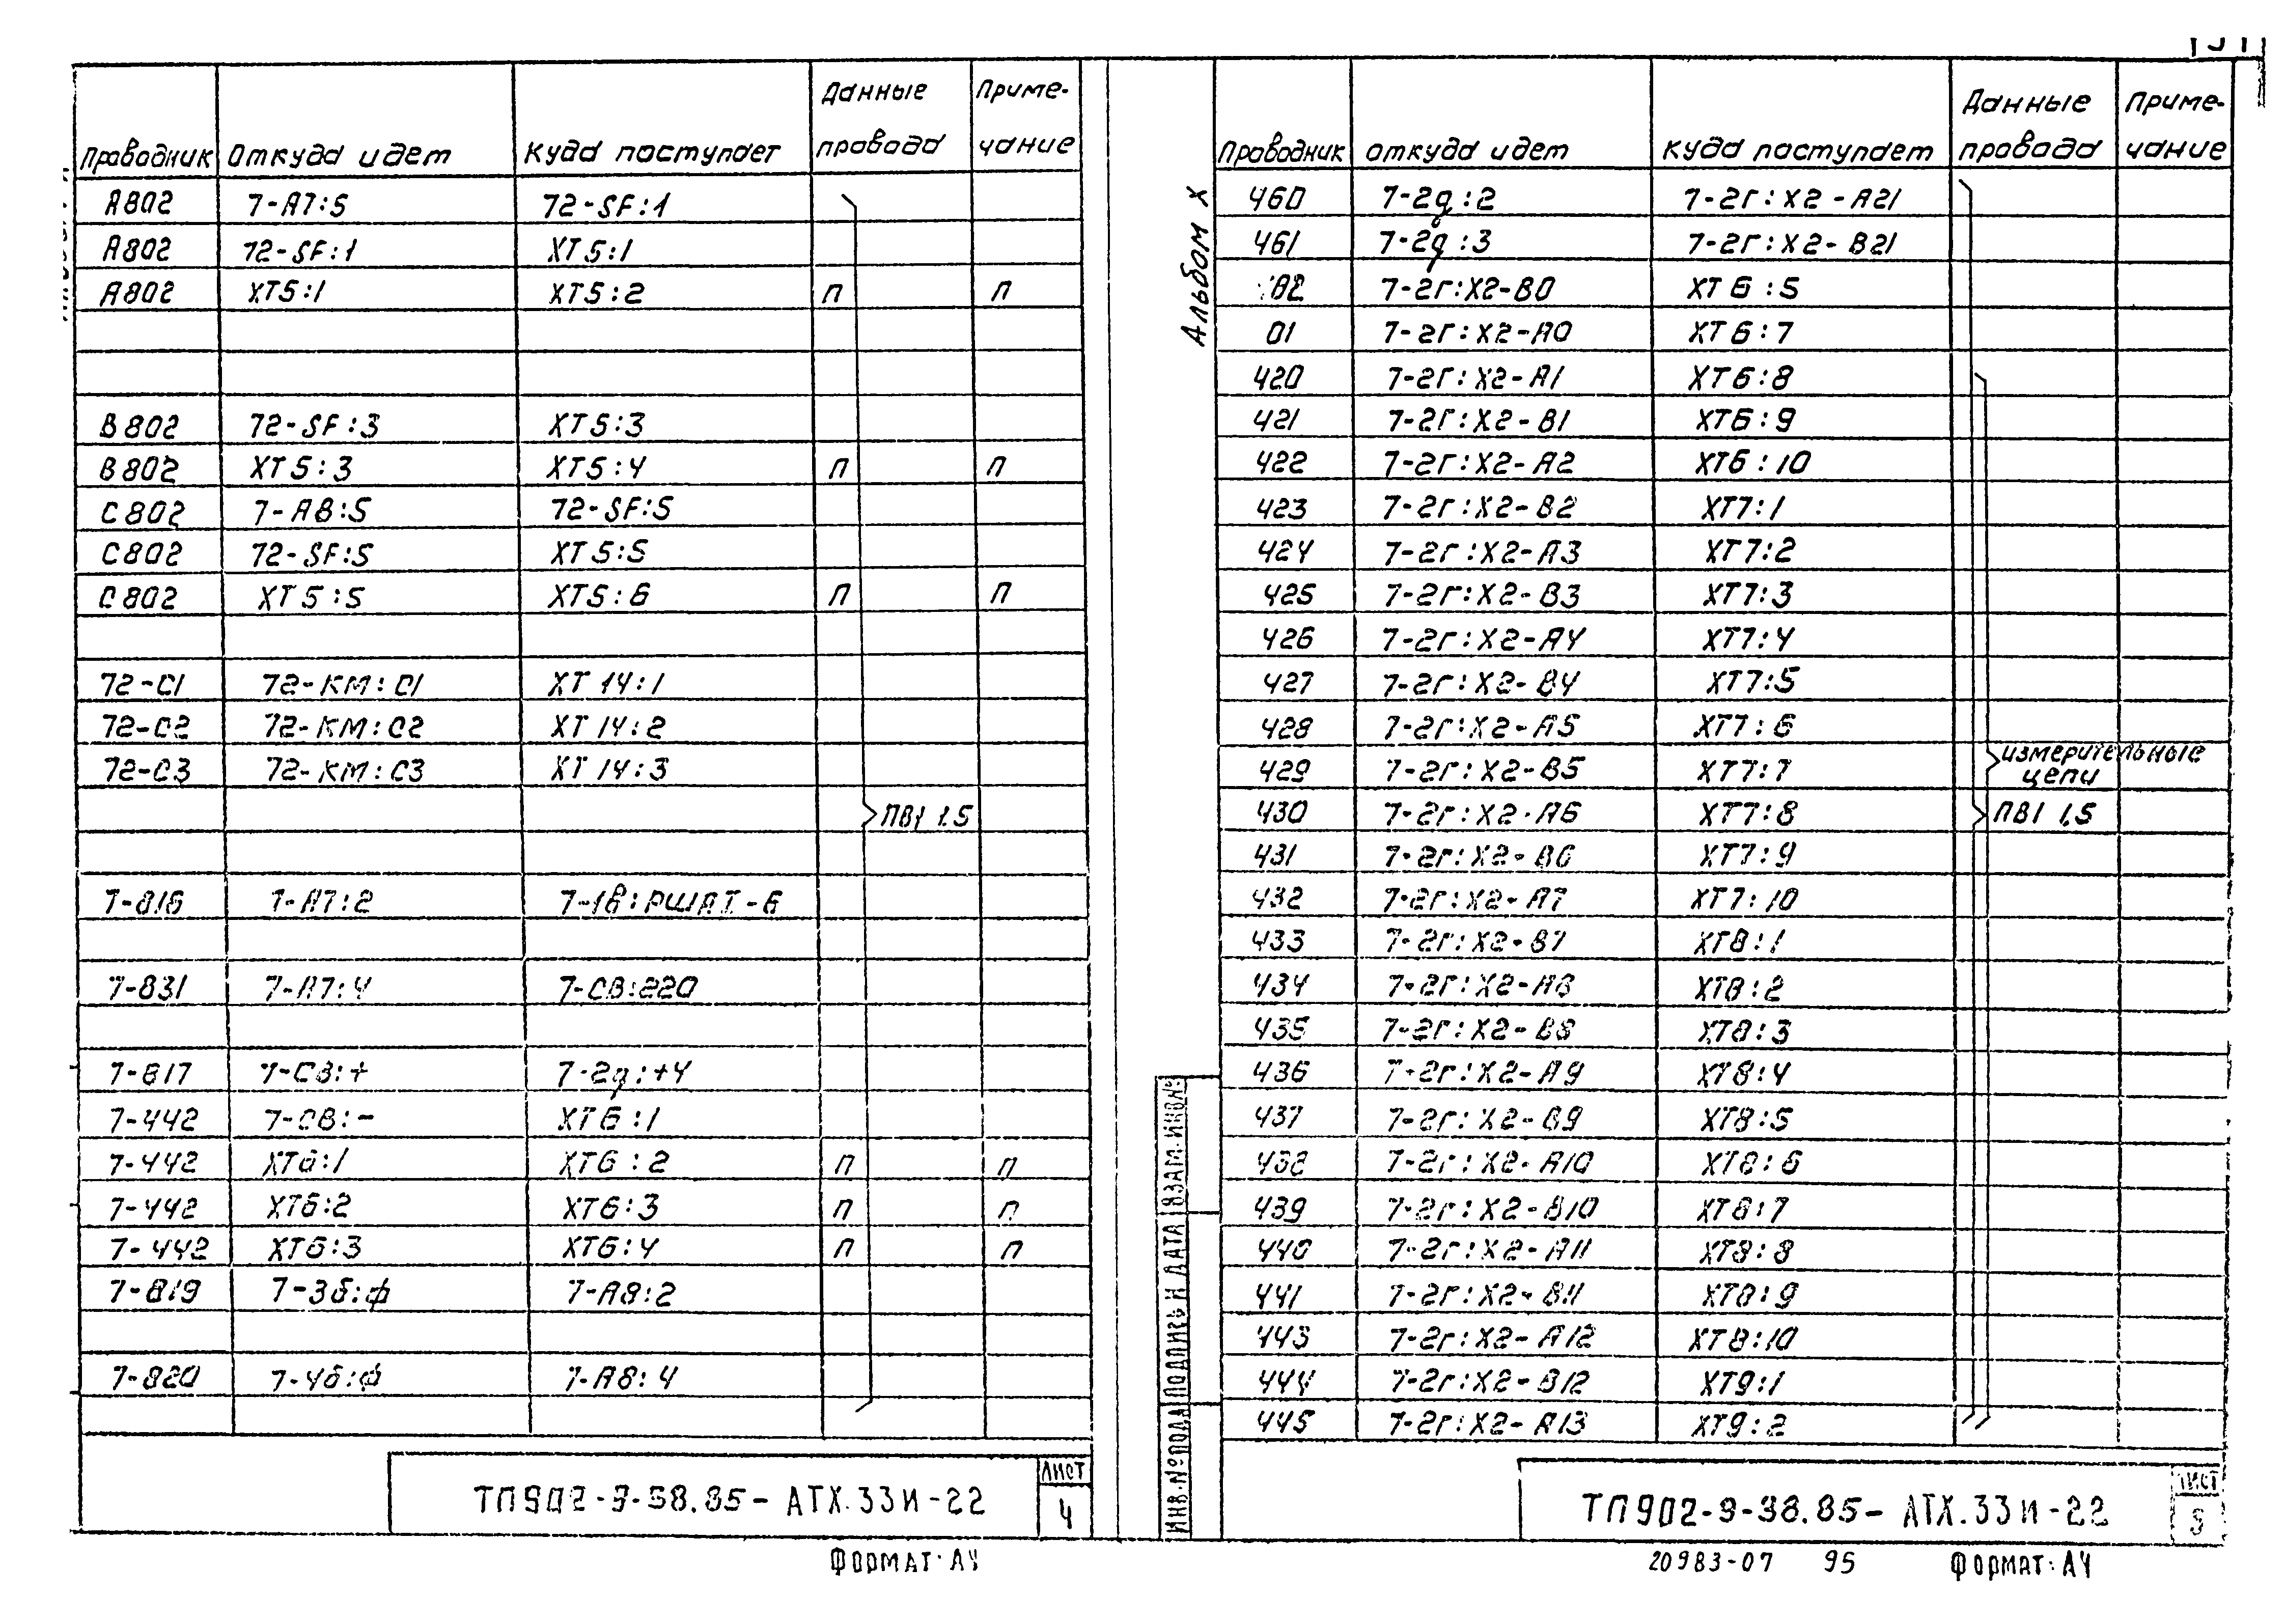 Проводник Откуда идет Куда поступает Данные провода Приме-чание
А802 7-А7:5 72-SF:1
А802 72-SF:1 ХТ5:1
А802 ХТ5:1 ХТ5:2 п п
В802 72-SF:3 ХТ5:3
В802 ХТ5:3 ХТ5:4 п п
С802 7-А8:5 72-SF:5
С802 72-SF:5 ХТ5:5
С802 ХТ5:5 ХТ5:6 п п
72-С1 72-КМ:С1 ХТ14:1
72-С2 72-КМ:С2 ХТ14:2
72-С3 72-КМ:С3 ХТ14:3
ПВ1 1.5
7-816 7-А7:2 7-1в:РШАТ-6
7-831 7-А7:4 7-СВ:220
7-817 7-СВ:+ 7-2д:+4
7-442 7-СВ:- ХТ6:1
7-442 ХТ6:1 ХТ6:2 п п
7-442 ХТ6:2 ХТ6:3 п п
7-442 ХТ6:3 ХТ6:4 п п
7-819 7-3б:ф 7-А8:2
7-820 7-4б:ф 7-А8:4
ТП902-9-38.85-АТХ.33И-22
Лист
4
Формат: А4
Альбом X
Проводник откуда идет куда поступает Данные провода Приме-чание
460 7-2д:2 7-2г:Х2-А21
461 7-2д:3 7-2г:Х2-В21
02 7-2г:Х2-В0 ХТ6:5
01 7-2г:Х2-А0 ХТ6:7
420 7-2г:Х2-А1 ХТ6:8
421 7-2г:Х2-В1 ХТ6:9
422 7-2г:Х2-А2 ХТ6:10
423 7-2г:Х2-В2 ХТ7:1
424 7-2г:Х2-А3 ХТ7:2
425 7-2г:Х2-В3 ХТ7:3
426 7-2г:Х2-А4 ХТ7:4
427 7-2г:Х2-В4 ХТ7:5
428 7-2г:Х2-А5 ХТ7:6
429 7-2г:Х2-В5 ХТ7:7 измерительные цепи
430 7-2г:Х2-А6 ХТ7:8 ПВ1 1,5
431 7-2г:Х2-В6 ХТ7:9
432 7-2г:Х2-А7 ХТ7:10
433 7-2г:Х2-В7 ХТ8:1
434 7-2г:Х2-А8 ХТ8:2
435 7-2г:Х2-В8 ХТ8:3
436 7-2г:Х2-А9 ХТ8:4
437 7-2г:Х2-В9 ХТ8:5
438 7-2г:Х2-А10 ХТ8:6
439 7-2г:Х2-В10 ХТ8:7
440 7-2г:Х2-А11 ХТ8:8
441 7-2г:Х2-В11 ХТ8:9
443 7-2г:Х2-А12 ХТ8:10
444 7-2г:Х2-В12 ХТ9:1
445 7-2г:Х2-А13 ХТ9:2
ИНВ.№ПОДЛ ПОДПИСЬ И ДАТА ВЗАМ.ИНВ№
ТП902-9-38.85-АТХ.33И-22
Лист
5
20983-07 95 Формат: А4